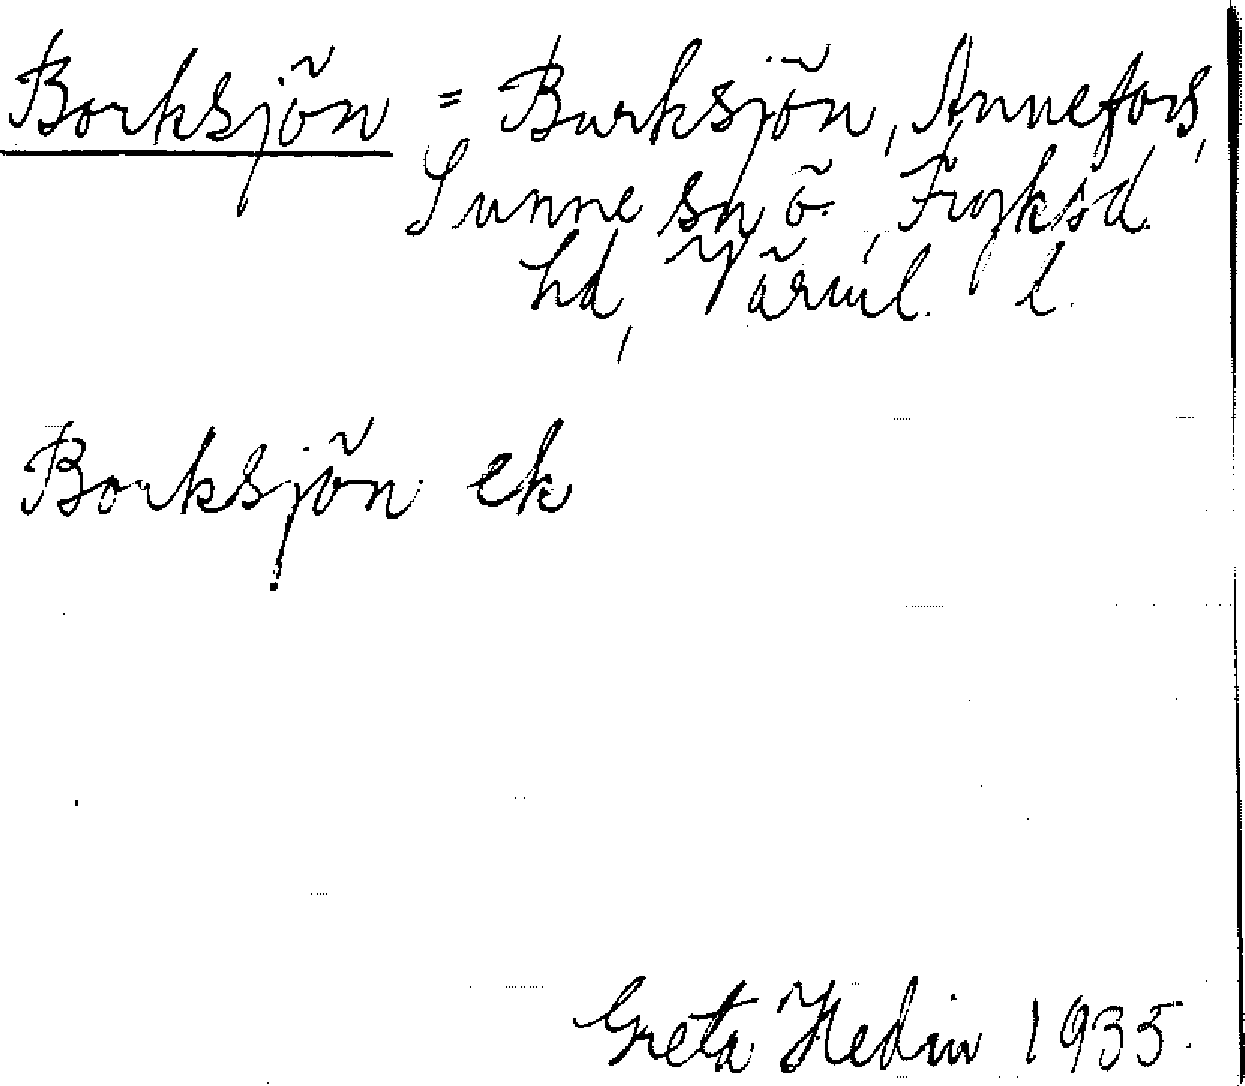 Borksjön = Burksjön, Annefors,
Sunne sn ö, Fryksd.
hd, Värml. l.
Borksjön ek
Greta Hedin 1935.